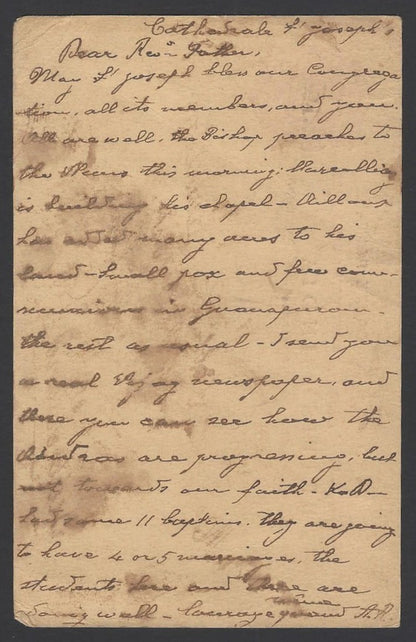 Cathedrale St Joseph's
Dear Revn Father,
May St Joseph bless our Congrega
tion, all its members, and you.
All are well. the Bishop preaches to
the this morning.
is building his chapel -
has added many acres to his
land - Small pox and few com-
munions in
the rest as usual - I send you
a real newspaper, and
there you can see how the
are progressing, but
not towards our faith -
had some 11 baptisms. they are going
to have 4 or 5 marriages. the
students here and there are
doing well - Courage